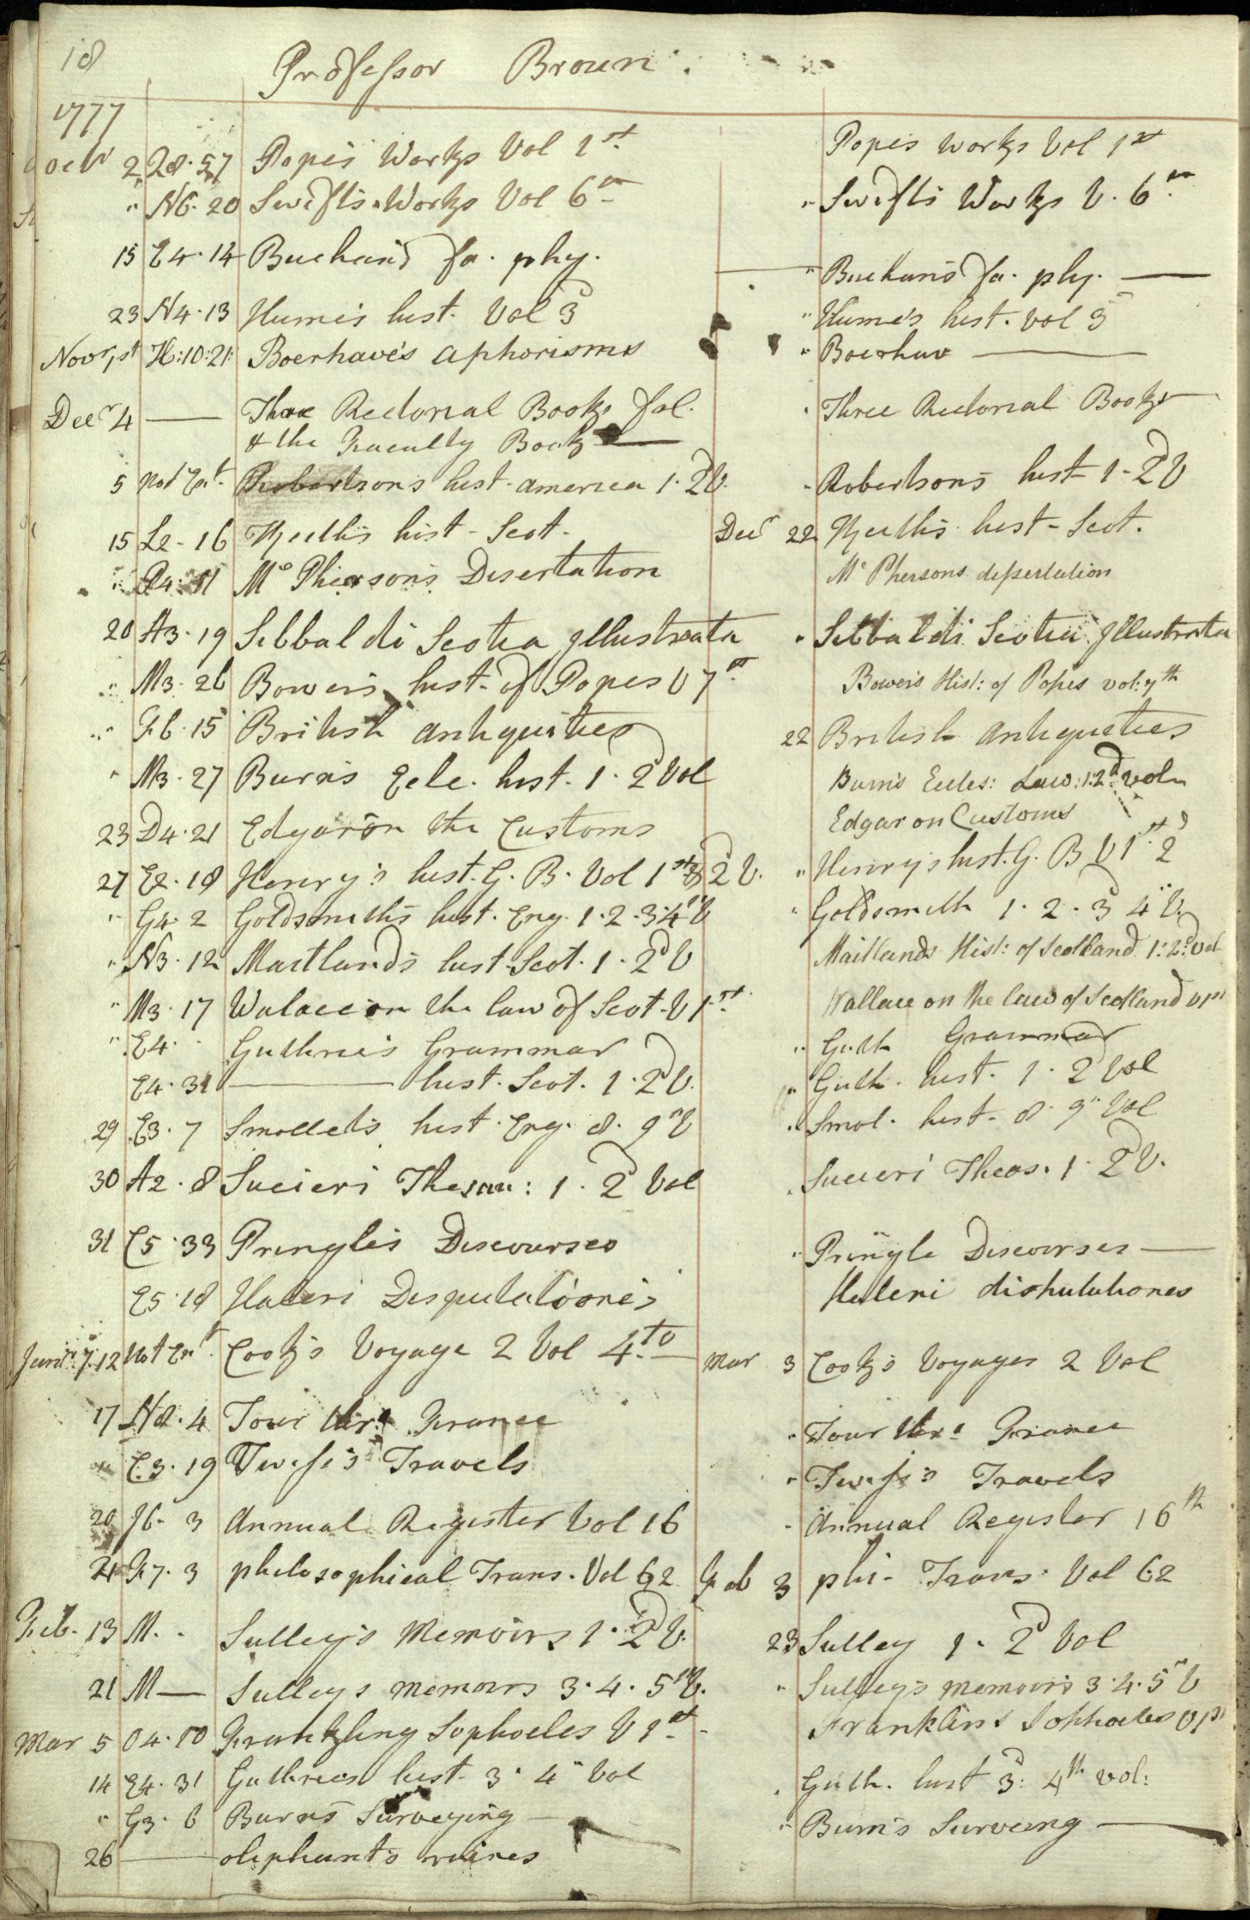 18
Professor Broun
1777
Octr 2 Q8.57 Popes Works Vol 1st Popes works Vol 1st
" N6.20 Swifts Works Vol 6th " Swifts Works V. 6th
15 E4.14 Buchans fa. phy. " Buchans fa. phy.
23 N4.13 Humes hist. Vol 3d " Humes hist. vol 3
Novr 1st H:10:21 Boerhave's aphorisms " Boerhav
Decr 4 Three Rectorial Books fol. Three Rectorial Books
& the Faculty Book
5 Not Ent Robertsons hist. america 1.2d V. Robertsons hist 1-2d V
15 L2-16 Keeths hist-Scot. Decr 22 Keeths hist-Scot.
" 11 Mc Phersons Disertation Mc Phersons dissertation
20 A3.19 Sibbaldi Scotia Illustrata " Sibbaldi Scotia Illustrata
" M3.26 Bowers hist-of Popes V 7th Bowers Hist: of Popes vol: 7th
" F6.15 British antiquities 22 British antiquities
" M3.27 Burns Ecle. hist. 1.2d Vol Burns Eccles: Law: 1:2d vol
23 D4.21 Edgar on the Customs Edgar on Customs
27 E2.18 Henry's hist. G. B. Vol 1st & 2d V. " Henry's hist. G. B V 1st. 2d
" G4.2 Goldsmiths hist. Eng. 1.2.3.4th V " Goldsmith 1.2.3 4th V
" N3.12 Maitlands hist. Scot. 1.2d V Maitlands Hist: of Scotland 1:2d vol
" M3.17 Walace on the law of Scot. V 1st Wallace on the law of Scotland v 1st
" E4. Guthrie's Grammar " Guth Grammar
E4.31 hist. Scot. 1.2d V. " Guth. hist. 1.2d Vol
29 E3.7 Smollets hist. Eng. 8.9th V " Smol. hist. 8.9th Vol
30 A2.8 Suiceri Thesau: 1.2d Vol Suiceri Theas. 1.2d V.
31 C5.33 Pringles Discourses " Pringle Discourses
E5.18 Haleri Disputationes Haleri disputationes
12 Not Ent Cook's Voyage 2 Vol 4to Mar 3 Cook's Voyages 2 Vol
17 N8.4 Tour thro France " Tour thro France
" C3.19 Twiss's Travels " Twiss's Travels
20 J6.3 Annual Register Vol 16 " Annual Register 16th
21 F7.3 philosophical Trans. Vol 62 Feb 3 phi. Trans. Vol 62
Feb. 13 M. Sulley's Memoirs 1.2d V. 23 Sulley 1.2d Vol
21 M Sulleys memoirs 3.4.5th V. " Sulley's memoirs 3.4.5th V
Mar 5 O4.10 Frankling Sophocles V 1st Franklins Sophocles v 1st
14 E4.31 Guthries hist. 3.4th Vol Guth. hist 3d: 4th vol:
" G3.6 Burns Surveying " Burn's Surveing
26 oliphants ruines